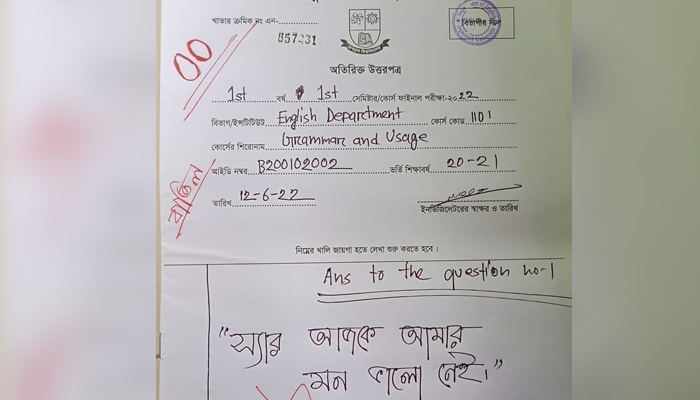 খাতার ক্রমিক নং এন-
857231
বিভাগীয় সিল
00
অতিরিক্ত উত্তরপত্র
1st বর্ষ 1st সেমিষ্টার/কোর্স ফাইনাল পরীক্ষা-২০22
বিভাগ/ইন্সটিটিউট English Department কোর্স কোড 1101
কোর্সের শিরোনাম Grammar and Usage
আইডি নম্বর B200102002 ভর্তি শিক্ষাবর্ষ 20-21
বাতিল
তারিখ 12-6-22
ইনভিজিলেটরের স্বাক্ষর ও তারিখ
নিম্নের খালি জায়গা হতে লেখা শুরু করতে হবে।
Ans to the question no-1
"স্যার আজকে আমার
মন ভালো নেই।"